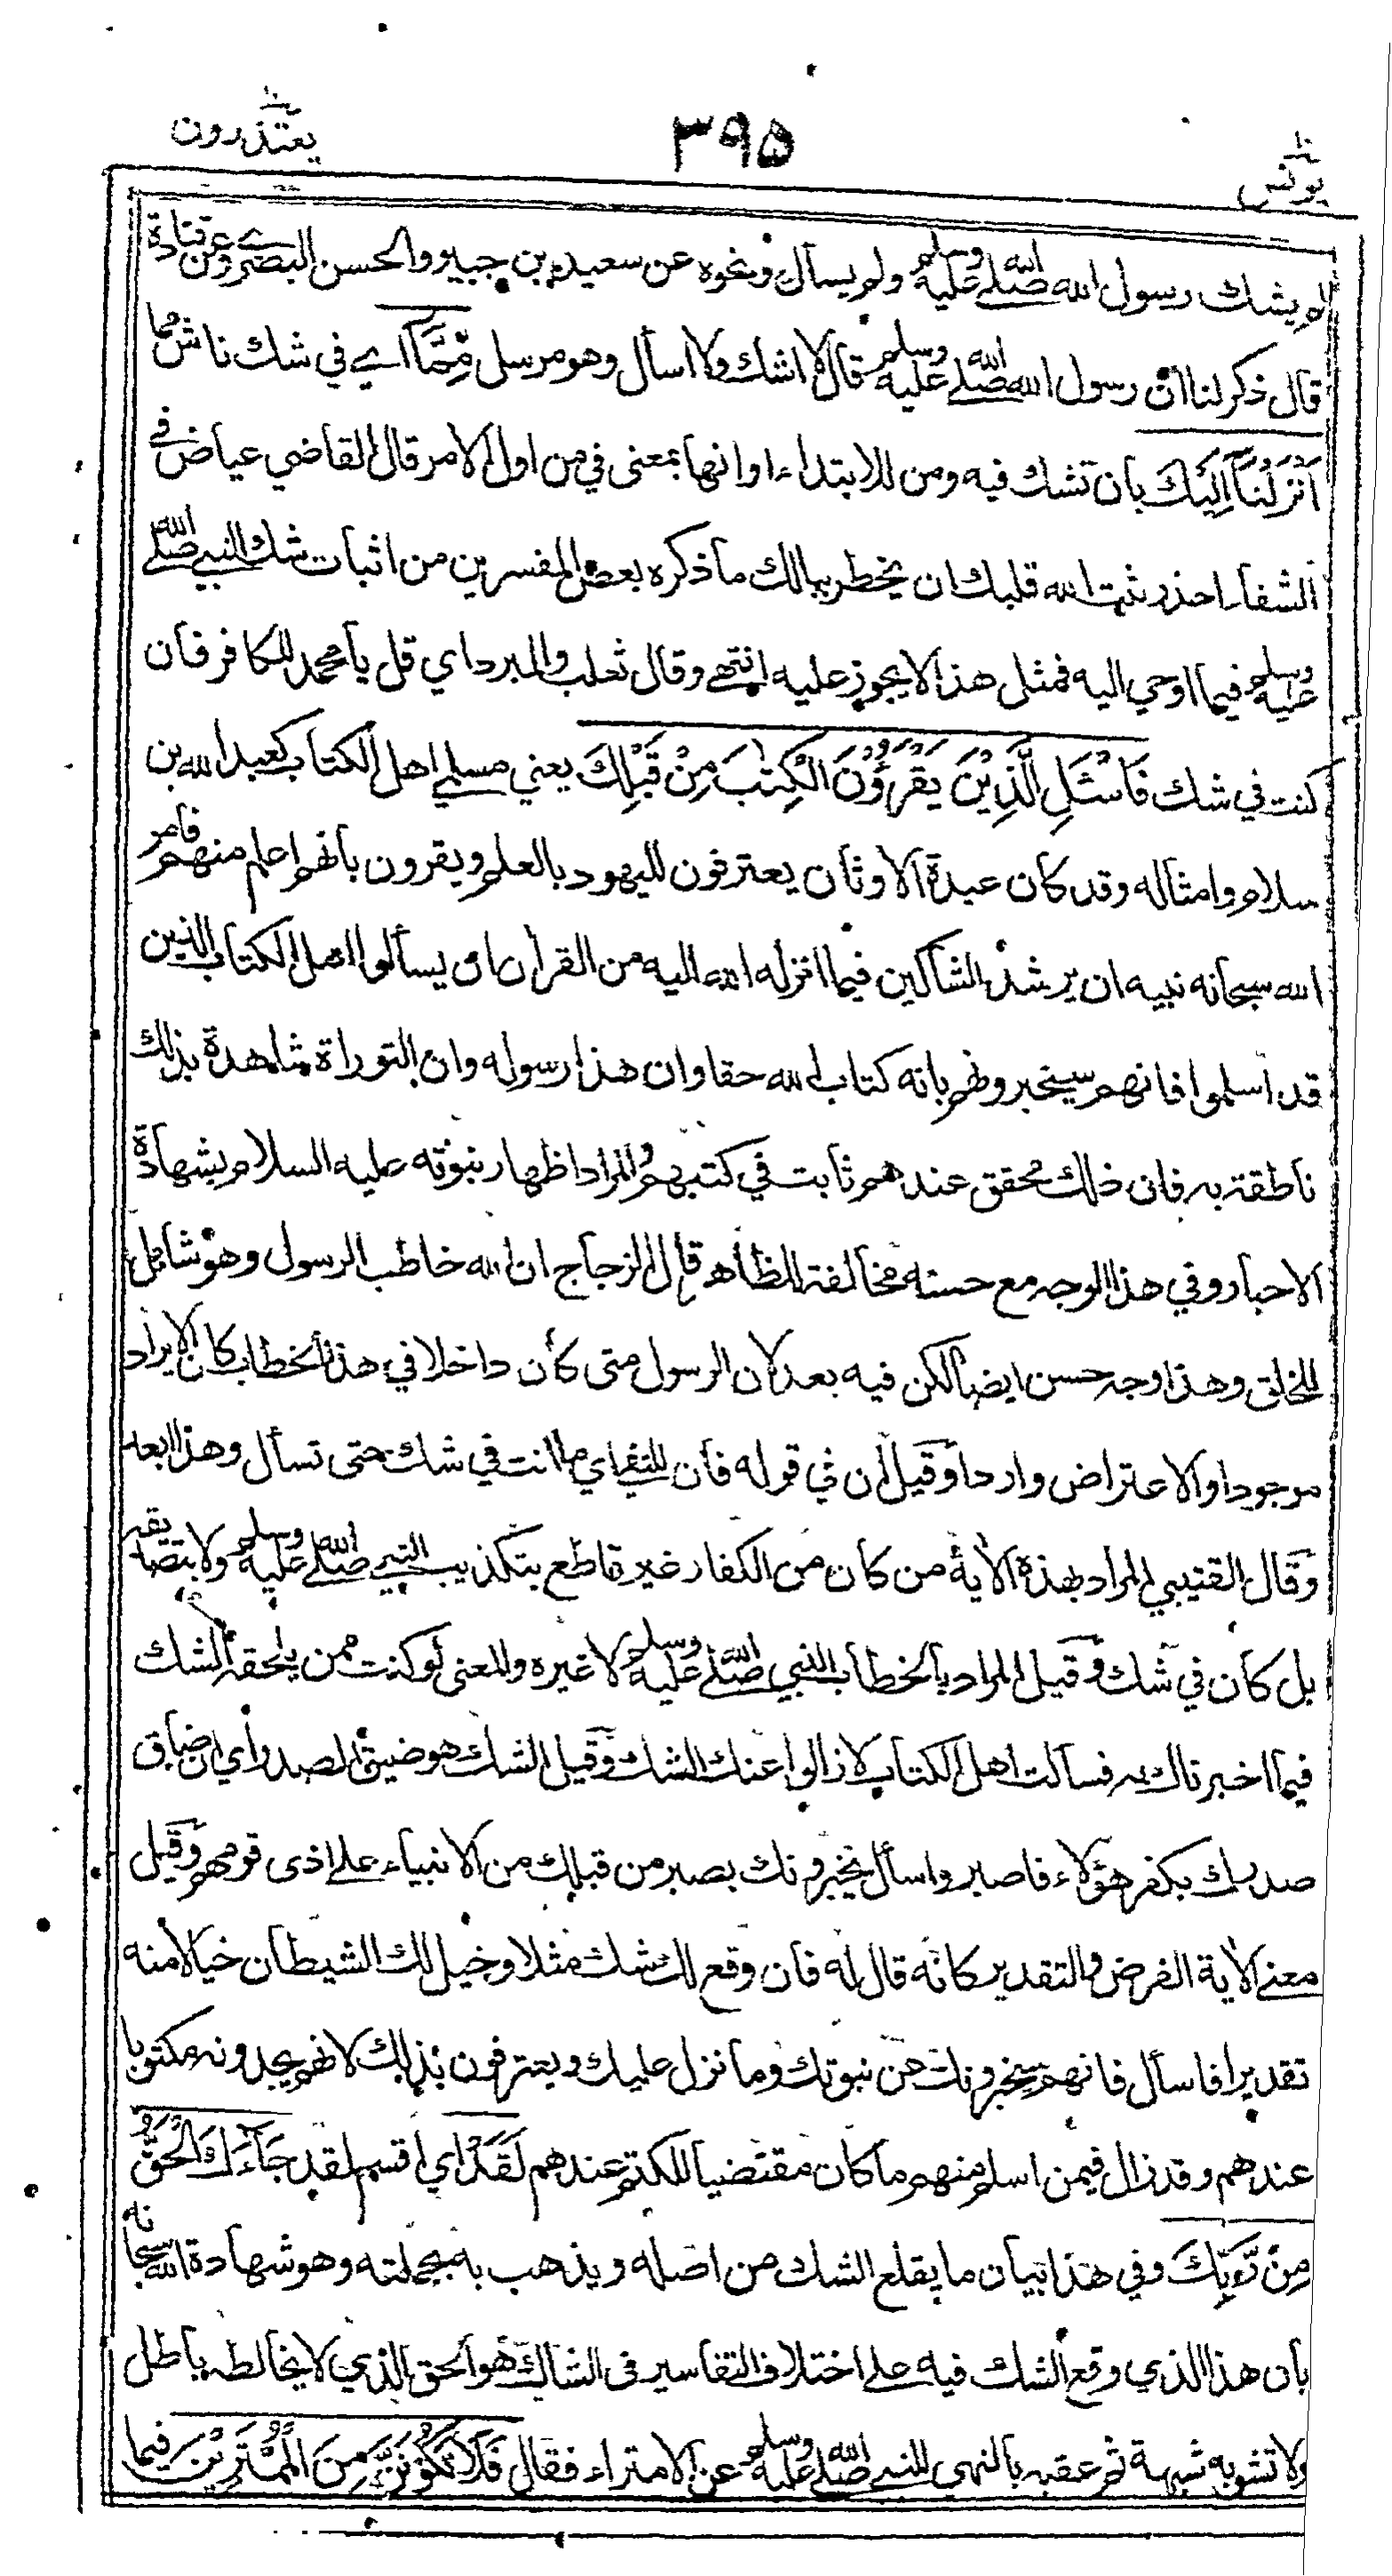 يونس ١٠
٣٩٥
يعتذرون ١٠
لم يشك رسول الله صلى الله عليه وسلم ولم يسأل ونحوه عن سعيد بن جبير والحسن البصري وعن قتادة
قال ذكر لنا ان رسول الله صلى الله عليه وسلم قال لا اشك ولا اسأل وهو مرسل مِّمَّا اي في شك ناش مما
اَنْزَلْنَا اِلَيْكَ بان تشك فيه ومن للابتداء او انها بمعنى في من اول الامر قال القاضي عياض في
الشفاء احذر ثبت الله قلبك ان يخطر ببالك ما ذكره بعض المفسرين من اثبات شك النبي صلى الله
عليه وسلم فيما اوحي اليه فمثل هذا لا يجوز عليه انتهى وقال ثعلب والمبرد اي قل يا محمد للكافر فان
كنت في شك فَاسْئَلِ الَّذِيْنَ يَقْرَؤُوْنَ الْكِتٰبَ مِنْ قَبْلِكَ يعني مسلمي اهل الكتاب كعبد الله بن
سلام وامثاله وقد كان عبدة الاوثان يعترفون لليهود بالعلم ويقرون بانهم اعلم منهم فامر
الله سبحانه نبيه ان يرشد الشاكين فيما انزله الله اليه من القرأن بان يسألوا اهل الكتاب الذين
قد اسلموا فانهم سيخبرونهم بانه كتاب الله حقا وان هذا رسوله وان التوراة شاهدة بذلك
ناطقة به فان ذلك محقق عندهم ثابت في كتبهم والمراد اظهار نبوته عليه السلام بشهادة
الاحبار وفي هذا الوجه مع حسنه مخالفة للظاهر قال الزجاج ان الله خاطب الرسول وهو شامل
للخلق وهذا وجه حسن ايضا لكن فيه بعد لان الرسول متى كان داخلا في هذا الخطاب كان الايراد
موجودا والاعتراض واردا وقيل ان في قوله فان للنفي اي ما انت في شك حتى تسأل وهذا ابعد
وقال القتيبي المراد بهذه الاية من كان من الكفار غير قاطع بتكذيب النبي صلى الله عليه وسلم ولا بتصديقه
بل كان في شك وقيل المراد بالخطاب النبي صلى الله عليه وسلم لا غيره والمعنى لو كنت ممن يلحقه الشك
فيما اخبرناك به فسألت اهل الكتاب لازالوا عنك الشك وقيل الشك هو ضيق الصدر اي ان ضاق
صدرك بكفر هؤلاء فاصبر واسأل يخبرونك بصبر من قبلك من الانبياء على اذى قومهم وقيل
معنى الاية الفرض والتقدير كانه قال له فان وقع لك شك مثلا وخيل لك الشيطان خيالا منه
تقديرا فاسأل فانهم سيخبرونك عن نبوتك وما نزل عليك ويعترفون بذلك لانهم يجدونه مكتوبا
عندهم وقد زال فيمن اسلم منهم ما كان مقتضيا للكتم عندهم لَقَدْ اي اقسم لقد جَآءَكَ الْحَقُّ
مِنْ رَّبِّكَ وفي هذا بيان ما يقلع الشك من اصله ويذهب به بجملته وهو شهادة الله سبحانه
بان هذا الذي وقع الشك فيه على اختلاف التفاسير في الشاك هو الحق الذي لا يخالطه باطل
ولا تشوبه شبهة ثم عقبه بالنهي للنبي صلى الله عليه وسلم عن الامتراء فقال فَلَا تَكُوْنَنَّ مِنَ الْمُمْتَرِيْنَ فيما